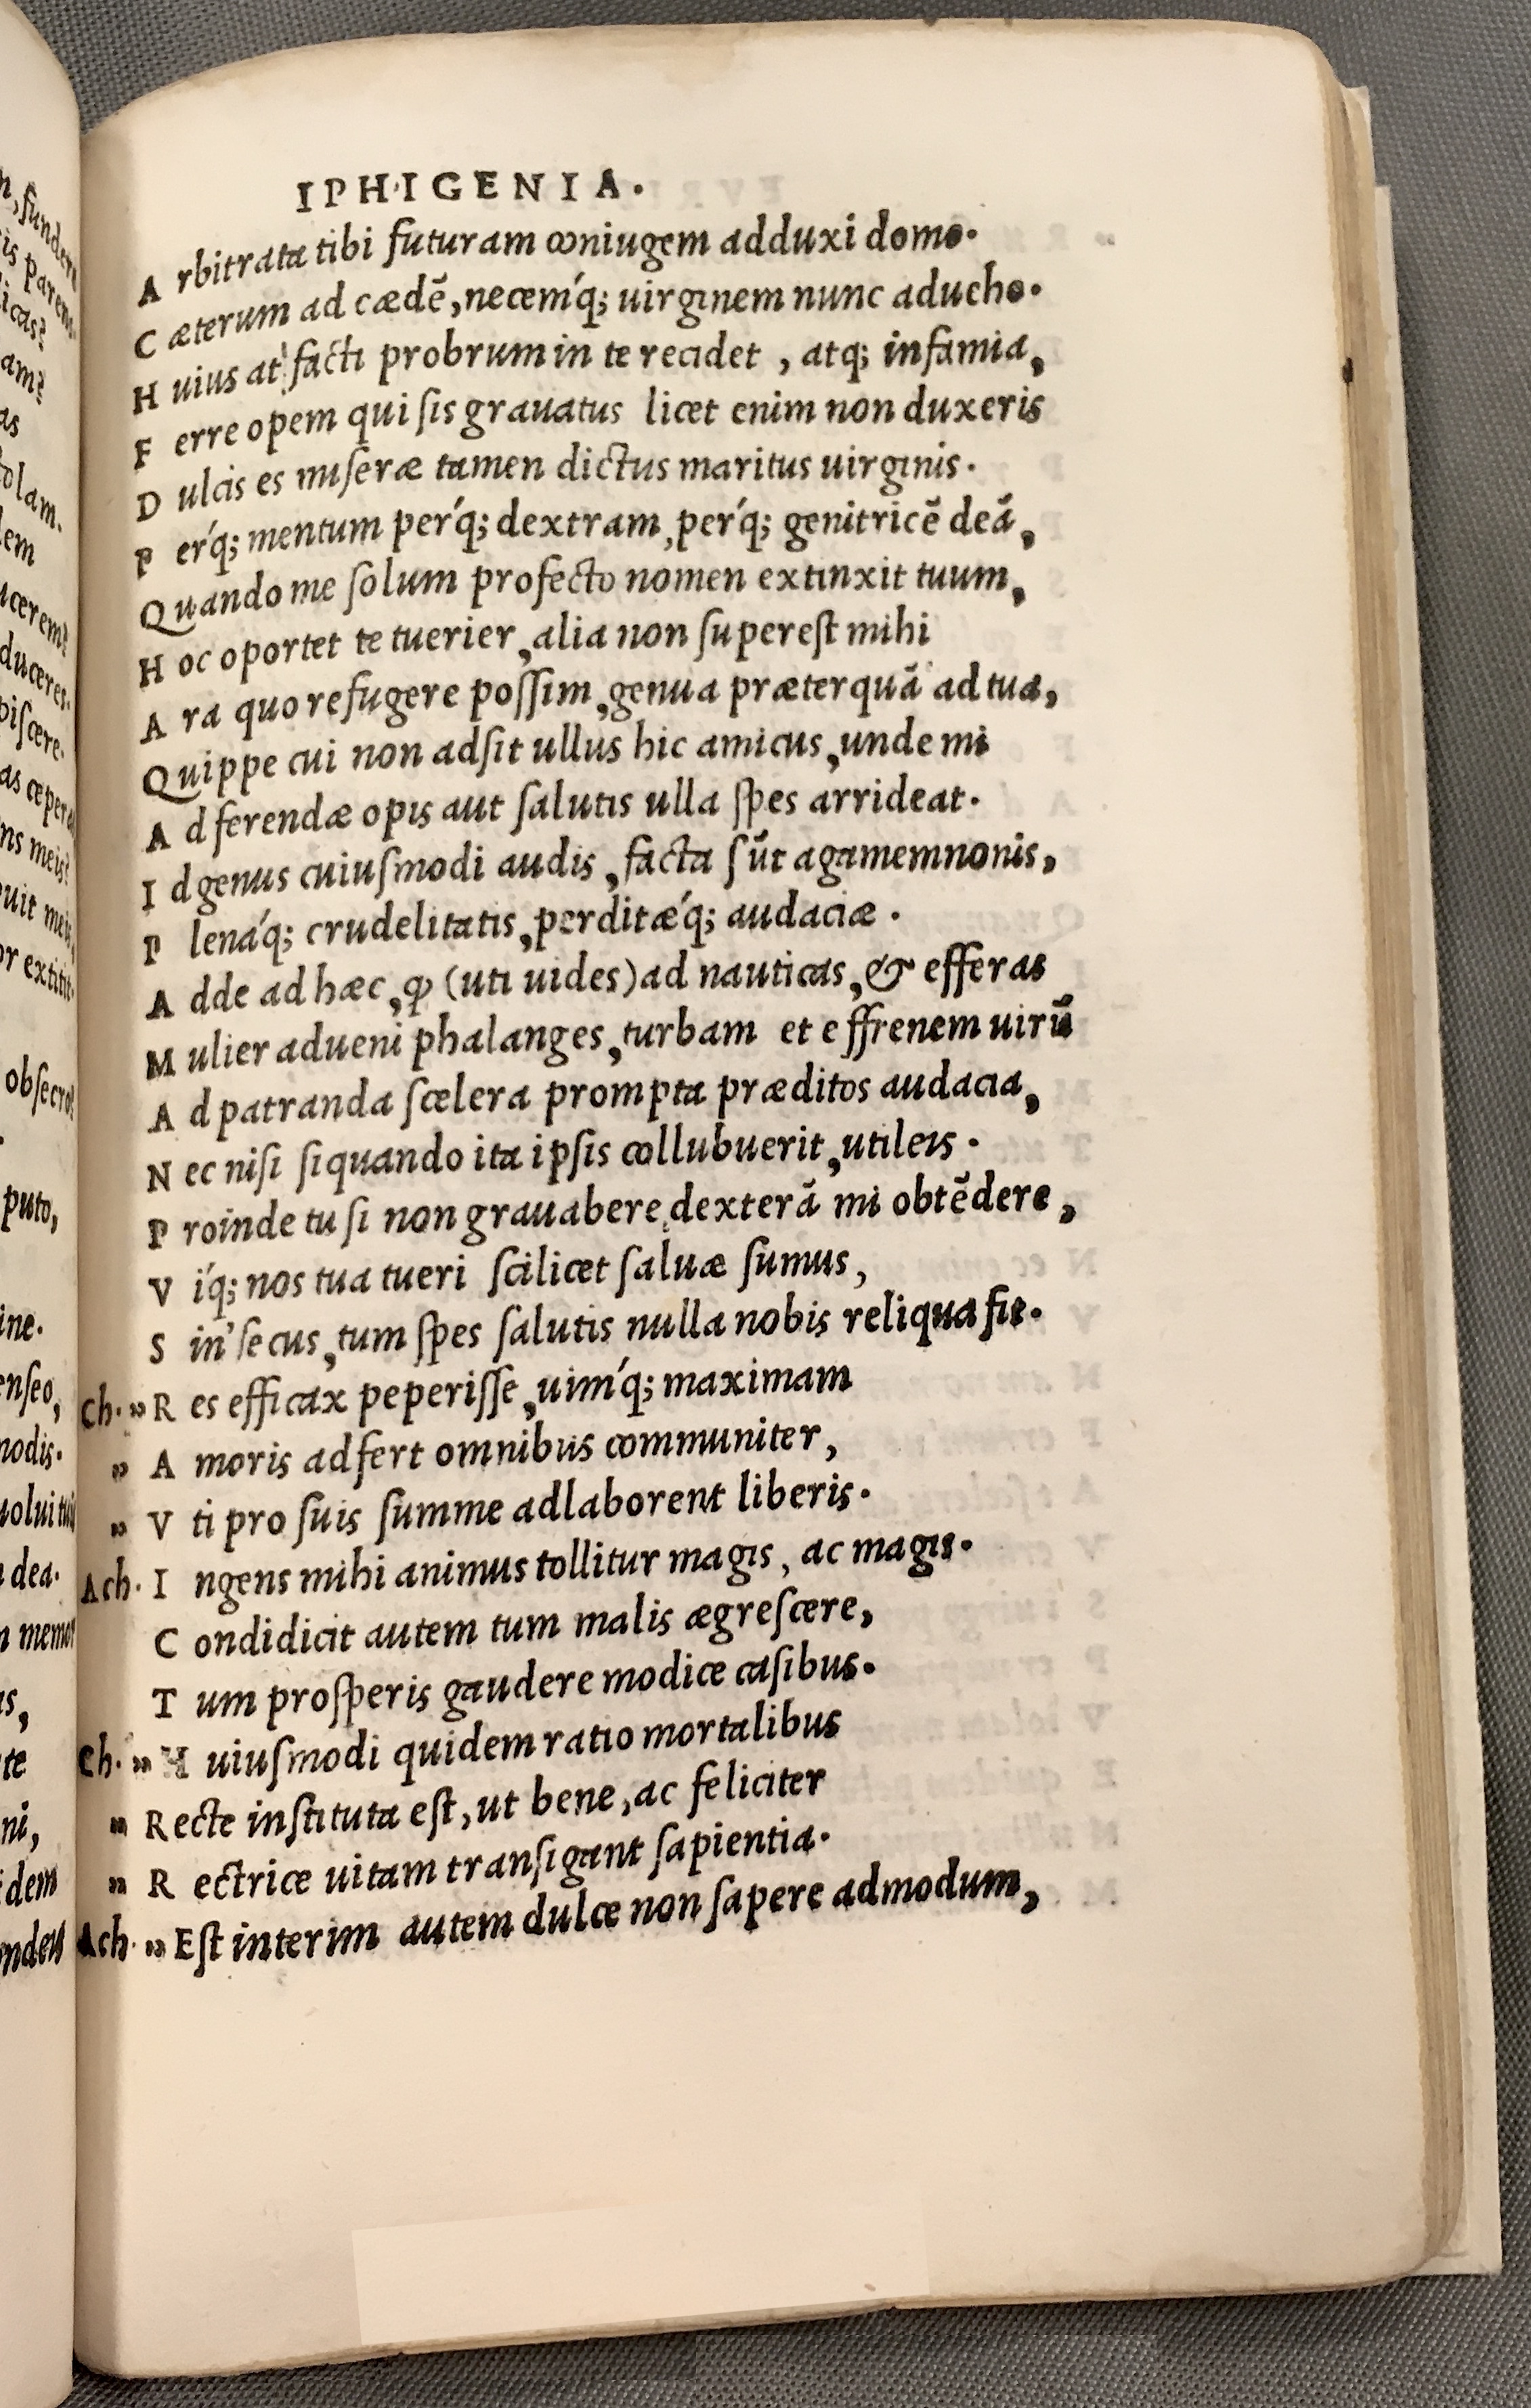 IPHIGENIA.
Arbitrata tibi futuram coniugem adduxi domo.
Cæterum ad cædẽ, necemq́; uirginem nunc adueho.
Huius at facti probrum in te recidet, atq; infamia,
Ferre opem qui ſis grauatus licet enim non duxeris
Dulcis es miſeræ tamen dictus maritus uirginis.
Perq́; mentum perq́; dextram, perq́; genitricẽ deã,
Quando me ſolum profecto nomen extinxit tuum,
Hoc oportet te tuerier, alia non ſupereſt mihi
Ara quo refugere poſſim, genua præterquã ad tua,
Quippe cui non adſit ullus hic amicus, unde mi
Adferendæ opis aut ſalutis ulla ſpes arrideat.
Id genus cuiuſmodi audis, facta ſũt agamemnonis,
Plenaq́; crudelitatis, perditæq́; audaciæ.
Adde ad hæc, ꝙ (uti uides) ad nauticas, & efferas
Mulier adueni phalanges, turbam et effrenem uirũ
Ad patranda ſcelera prompta præditos audacia,
Nec niſi ſiquando ita ipſis collubuerit, utileis.
Proinde tu ſi non grauabere dexterã mi obtẽdere,
Viq́; nos tua tueri ſcilicet ſaluæ ſumus,
Sin ſecus, tum ſpes ſalutis nulla nobis reliqua fit.
Ch. » Res efficax peperiſſe, uimq́; maximam
» Amoris adfert omnibus communiter,
» Vti pro ſuis ſumme adlaborent liberis.
Ach. Ingens mihi animus tollitur magis, ac magis.
Condidicit autem tum malis ægreſcere,
Tum proſperis gaudere modice caſibus.
Ch. » Huiuſmodi quidem ratio mortalibus
» Recte inſtituta eſt, ut bene, ac feliciter
» Rectrice uitam tranſigant ſapientia.
Ach. » Eſt interim autem dulce non ſapere admodum,